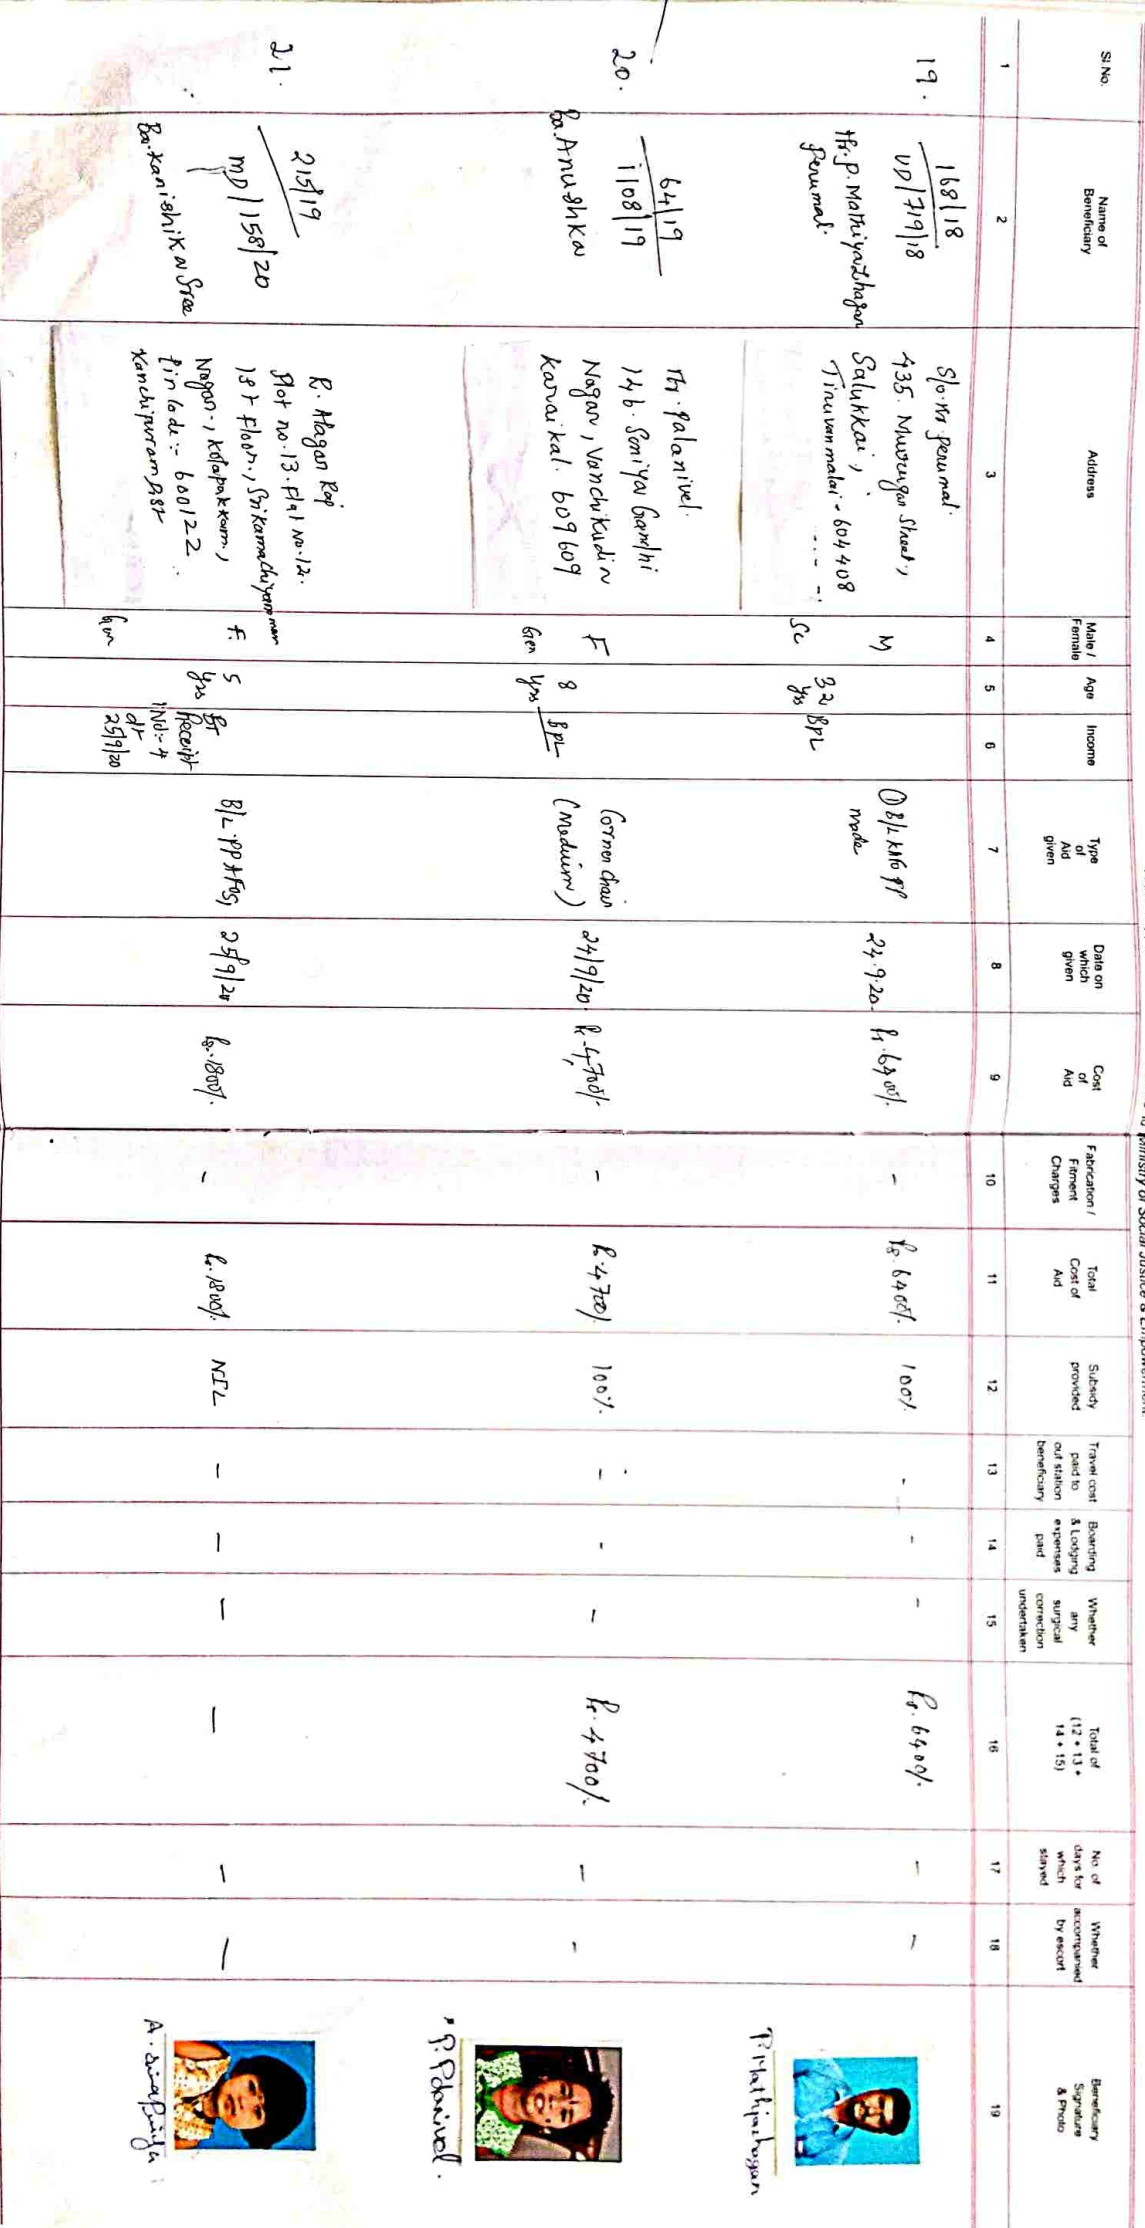 Ministry of Social Justice & Empowerment
Sl No.
Name of
Beneficiary
Address
Male /
Female
Age
Income
Type
of
Aid
given
Date on
which
given
Cost
of
Aid
Fabrication /
Fitment
Charges
Total
Cost of
Aid
Subsidy
provided
Travel cost
paid to
out station
beneficiary
Boarding
& Lodging
expenses
paid
Whether
any
surgical
correction
undertaken
Total of
(12 + 13 +
14 + 15)
No. of
days for
which
stayed
Whether
accompanied
by escort
Beneficiary
Signature
& Photo
1
2
3
4
5
6
7
8
9
10
11
12
13
14
15
16
17
18
19
19.
168/18
VD/719/18
Thr.P. Mathiyazhagan
Perumal.
S/o. Mr perumal.
435. Murugan Street,
Salukkai,
Tiruvanmalai - 604408
M
SC
32
yrs
BPL
① B/L KAFO PP
made
24.9.20.
Rs.6400/.
-
Rs.6400/.
100%.
-
-
-
Rs.6400/.
-
-
P. Mathiyazhagan
20.
64/19
i/08/19
Ba.Anushka
Thr. Palanivel.
146. Soniya Gandhi
Nagar, Vanchikudin
Karaikal. 609609
F
Gen
8
yrs
BPL
Corner chair
(Medium)
24/9/20.
Rs.4,700/-
-
Rs.4700/.
100%.
-
-
-
Rs.4700/.
-
-
P. Palanivel.
21.
215/19
MD/158/20
Ba.Kanishika Sree
R. Alagan Raj
Plot no.13. Flat No.12.
1st Floor., Srikamachiyamman
Nagar., Kolapakkam.,
Pin Code:- 600122
Kanchipuram Dist
F.
Gen
5
yrs
Receipt
No:- 4
dt
25/9/20
B/L. PP AFOS,
25/9/20
Rs.1800/.
-
Rs.1800/.
NIL
-
-
-
-
-
-